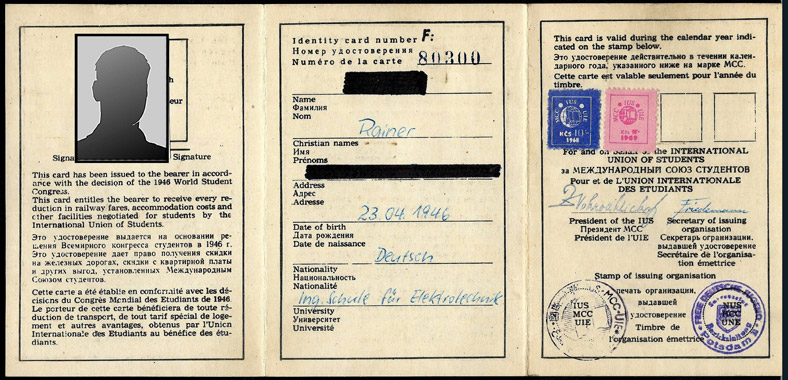 Signa
Signature
This card has been issued to the bearer in accord-
ance with the decision of the 1946 World Student
Congress.
This card entitles the bearer to receive every re-
duction in railway fares, accommodation costs and
other facilities negotiated for students by the
International Union of Students.
Это удостоверение выдается на основании ре-
шения Всемирного конгресса студентов в 1946 г.
Это удостоверение дает право получения скидки
на железных дорогах, скидки с квартирной платы
и других выгод, установленных Международным
Союзом студентов.
Cette carte a été établie en conformité avec les dé-
cisions du Congrès Mondial des Etudiants de 1946.
Le porteur de cette carte bénéficiera de toute ré-
duction de transport, de tout tarif spécial de loge-
ment et autres avantages, obtenus par l'Union
Internationale des Etudiants au bénéfice des étu-
diants.
Identity card number F:
Номер удостоверения
Numéro de la carte 80300
Name
Фамилия
Nom
Rainer
Christian names
Имя
Prénoms
Address
Адрес
Adresse
23.04.1946
Date of birth
Дата рождения
Date de naissance
Deutsch
Nationality
Национальность
Nationalité
Ing. Schule für Elektrotechnik
University
Университет
Université
This card is valid during the calendar year indi-
cated on the stamp below.
Это удостоверение действительно в течении кален-
дарного года, указанного ниже на марке МСС.
Cette carte est valable seulement pour l'année du
timbre.
IUS
MCC
UIE
Kčs 10
1968
IUS
MCC
UIE
1969
For and on behalf of the INTERNATIONAL
UNION OF STUDENTS
за МЕЖДУНАРОДНЫЙ СОЮЗ СТУДЕНТОВ
Pour et de L'UNION INTERNATIONALE
DES ETUDIANTS
Friedemann
President of the IUS
Президент МСС
Président de l'UIE
Secretary of issuing
organisation
Секретарь организации,
выдавшей удостоверение
Secrétaire de l'organisation
émettrice
Stamp of issuing organisation
печать организации,
выдавшей
удостоверение
Timbre de
l'organisation émettrice
IUS
MCC
UIE
FREIE DEUTSCHE JUGEND
NUS
МСС
UNE
Bezirksleitung
Potsdam